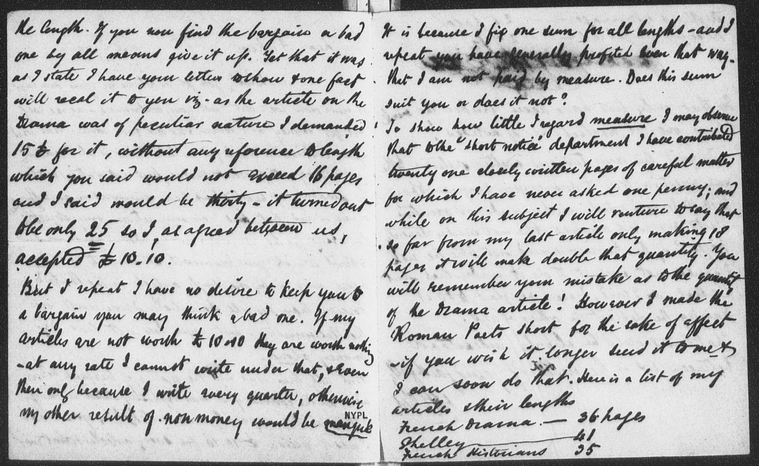 the length. If you now find the bargain a bad
one by all means give it up. Yet that it was
as I state I have your letters to show & one fact
will recal it to you viz - as the article on the
Drama was of peculiar nature I demanded
15£ for it, without any reference to length
which you said would not exceed 16 pages
and I said would be thirty - it turned out
to be only 25 so I, as agreed between us,
accepted £10-10.
But I repeat I have no desire to keep you to
a bargain you may think a bad one. If my
articles are not worth £10-10 they are worth nothing
- at any rate I cannot write under that, & even
then only because I write every quarter, otherwise
my other result of non money would be
NYPL
It is because I fix one sum for all lengths - and I
repeat you have generally profited even that way -
that I am not paid by measure. Does this sum
suit you or does it not?
To show how little I regard measure I may observe
that to the "short notice" department I have contributed
twenty one closely written pages of careful matter
for which I have never asked one penny; and
while on this subject I will venture to say that
so far from my last article only making 18
pages it will make double that quantity. You
will remember your mistake as to the quantity
of the Drama article! However I made the
Roman Poets short for the sake of effect
- if you wish it longer send it to me &
I can soon do that. Here is a list of my
articles & their lengths
French Drama. — 36 pages
Shelley — 41
French Historians 35